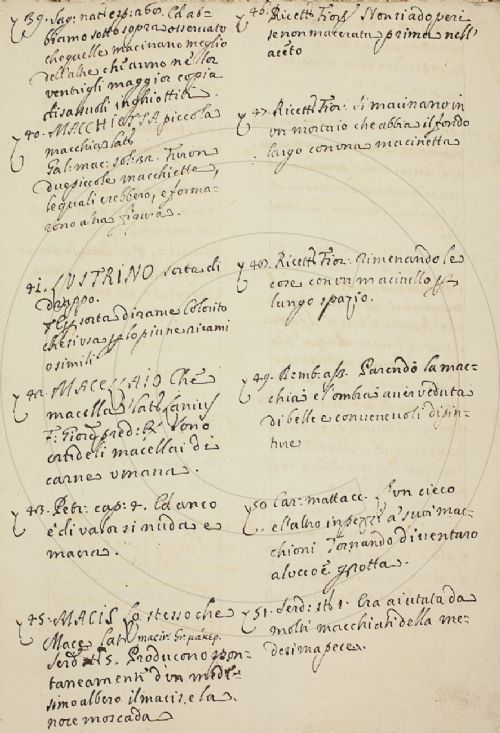 39. Sag: nat: esp: 260. Ed ab-
biamo sotto sopra osservato
che quelle macinano meglio
dell'altre ch'anno ne'llor
ventrigli maggior copia
di sassuoli inghiottiti.
40. MACCHIETTA piccola
macchia lat:
Gal: mac: sol: 132. Furon
due piccole macchiette,
le quali crebbero, e forma-
rono altra figura.
41. LUSTRINO sorta di
drappo.
sorta di rame colorito
che si usa lo più ne ricami
o simili
42. MACELLAIO Che
macella lat: Lanius
F: Giord: pred: R. Sono
crudeli macellai di
carne umana.
43. Petr: cap: 4. Ed anco
è di valor sì nuda e
macra.
45. MACIS Lo stesso che
Mace lat: macir. Gr: μακερ.
Serd: st: 5. Producono spon-
taneamenti d'un mede-
simo albero il macis, e la
noce moscada
46. Ricett: Fior: Non riadoperi
se non macerata prima nell'
aceto
47. Ricett: Fior: Si macinano in
un mortaio che abbia il fondo
largo con una macinetta
48. Ricett: Fior: Rimenando le
cose con un macinello
lungo spazio.
49. Bemb: ass: Parendo la mac-
chia e l'ombra aver veduta
di belle e convenevoli dipin-
ture
50. Car: mattacc: Sun cieco
e l'altro in pezzi a' suoi mac-
chioni Tornando diventaro
alocco e grotta.
51. Serd: st: 1. Era aiutata da
molti macchiati della me-
desima pece.